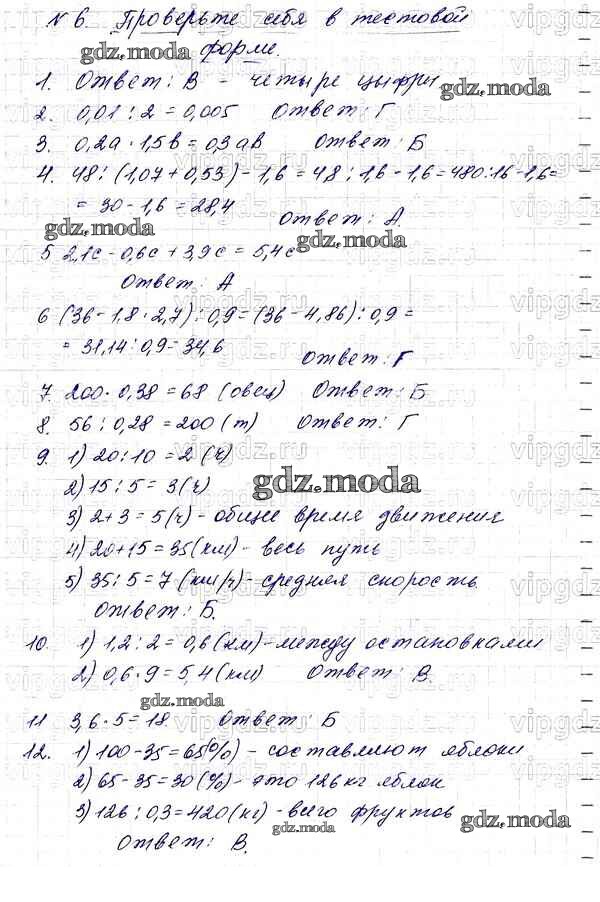 № 6. Проверьте себя в тестовой
форме.
1. Ответ: В - четыре цифры
2. 0,01 : 2 = 0,005 Ответ: Г
3. 0,2а · 1,5в = 0,3 ав Ответ: Б
4. 48 : (1,07 + 0,53) - 1,6 = 48 : 1,6 - 1,6 = 480 : 16 - 1,6 =
= 30 - 1,6 = 28,4
Ответ: А.
5 2,1с - 0,6с + 3,9с = 5,4с
Ответ: А
6 (36 - 1,8 · 2,7) : 0,9 = (36 - 4,86) : 0,9 =
= 31,14 : 0,9 = 34,6
Ответ: Г
7. 200 · 0,38 = 68 (овец) Ответ: Б
8. 56 : 0,28 = 200 (т) Ответ: Г
9. 1) 20 : 10 = 2 (ч)
2) 15 : 5 = 3 (ч)
3) 2 + 3 = 5 (ч) - общее время движения
4) 20 + 15 = 35 (км) - весь путь
5) 35 : 5 = 7 (км/ч) - средняя скорость
Ответ: Б.
10. 1) 1,2 : 2 = 0,6 (км) - между остановками
2) 0,6 · 9 = 5,4 (км) Ответ: В.
11 3,6 · 5 = 18. Ответ: Б
12. 1) 100 - 35 = 65 (%) - составляют яблоки
2) 65 - 35 = 30 (%) - это 126 кг яблок
3) 126 : 0,3 = 420 (кг) - всего фруктов
Ответ: В.
gdz.moda
gdz.moda
gdz.moda
gdz.moda
gdz.moda
gdz.moda
gdz.moda
gdz.moda
vipgdz.ru